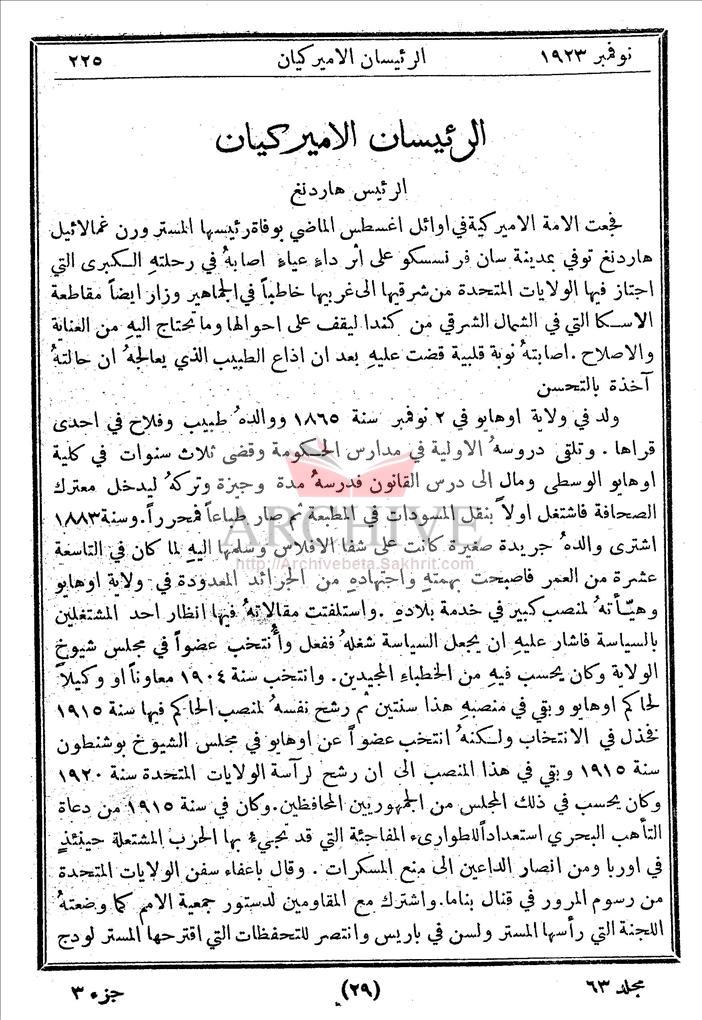 نوفمبر ١٩٢٣ الرئيسان الاميركيان ٢٢٥
الرئيسان الاميركيان
الرئيس هاردنغ
فجعت الامة الاميركية في اوائل اغسطس الماضي بوفاة رئيسها المستر ورن غمالائيل
هاردنغ توفي بمدينة سان فرنسسكو على أثر داءٍ عياءٍ اصابهُ في رحلتهِ الكبرى التي
اجتاز فيها الولايات المتحدة من شرقيها الى غربيها خاطباً في الجماهير وزار ايضاً مقاطعة
الاسكا التي في الشمال الشرقي من كندا ليقف على احوالها وما تحتاج اليهِ من العناية
والاصلاح . اصابتهُ نوبة قلبية قضت عليهِ بعد ان اذاع الطبيب الذي يعالجهُ ان حالتهُ
آخذة بالتحسن
ولد في ولاية اوهايو في ٢ نوفمبر سنة ١٨٦٥ ووالدهُ طبيب وفلاح في احدى
قراها . وتلقى دروسهُ الاولية في مدارس الحكومة وقضى ثلاث سنوات في كلية
اوهايو الوسطى ومال الى درس القانون فدرسهُ مدة وجيزة وتركهُ ليدخل معترك
الصحافة فاشتغل اولاً بنقل المسودات في المطبعة ثم صار طباعاً فمحرراً . وسنة ١٨٨٣
اشترى والدهُ جريدة صغيرة كانت على شفا الافلاس وسلمها اليهِ لما كان في التاسعة
عشرة من العمر فاصبحت بهمتهِ واجتهادهِ من الجرائد المعدودة في ولاية اوهايو
وهيّأتهُ لمنصب كبير في خدمة بلادهِ . واستلفتت مقالاتهُ فيها انظار احد المشتغلين
بالسياسة فاشار عليهِ ان يجعل السياسة شغلهُ ففعل وأُنتخب عضواً في مجلس شيوخ
الولاية وكان يحسب فيهِ من الخطباء المجيدين . وانتخب سنة ١٩٠٤ معاوناً او وكيلاً
لحاكم اوهايو وبقي في منصبهِ هذا سنتين ثم رشح نفسهُ لمنصب الحاكم فيها سنة ١٩١٥
فخذل في الانتخاب ولكنهُ انتخب عضواً عن اوهايو في مجلس الشيوخ بوشنطون
سنة ١٩١٥ وبقي في هذا المنصب الى ان رشح لرآسة الولايات المتحدة سنة ١٩٢٠
وكان يحسب في ذلك المجلس من الجمهوريين المحافظين . وكان في سنة ١٩١٥ من دعاة
التأهب البحري استعداداً للطوارىء المفاجئة التي قد تجيءُ بها الحرب المشتعلة حينئذٍ
في اوربا ومن انصار الداعين الى منع المسكرات . وقال باعفاء سفن الولايات المتحدة
من رسوم المرور في قنال بناما . واشترك مع المقاومين لدستور جمعية الامم كما وضعتهُ
اللجنة التي رأسها المستر ولسن في باريس وانتصر للتحفظات التي اقترحها المستر لودج
مجلد ٦٣ (٢٩) جزء ٣
ARCHIVE
http://Archivebeta.Sakhrit.com